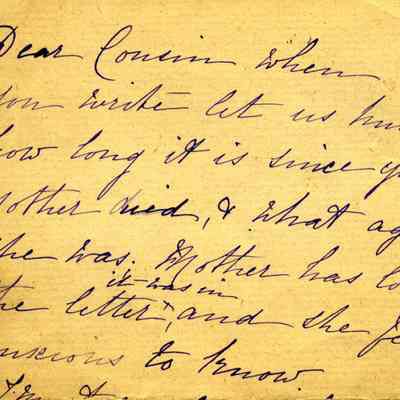 Dear Cousin When
you write let us
how long it is since
Mother died, & what
she was. Mother has
it was in
the letter, and she
anxious to know